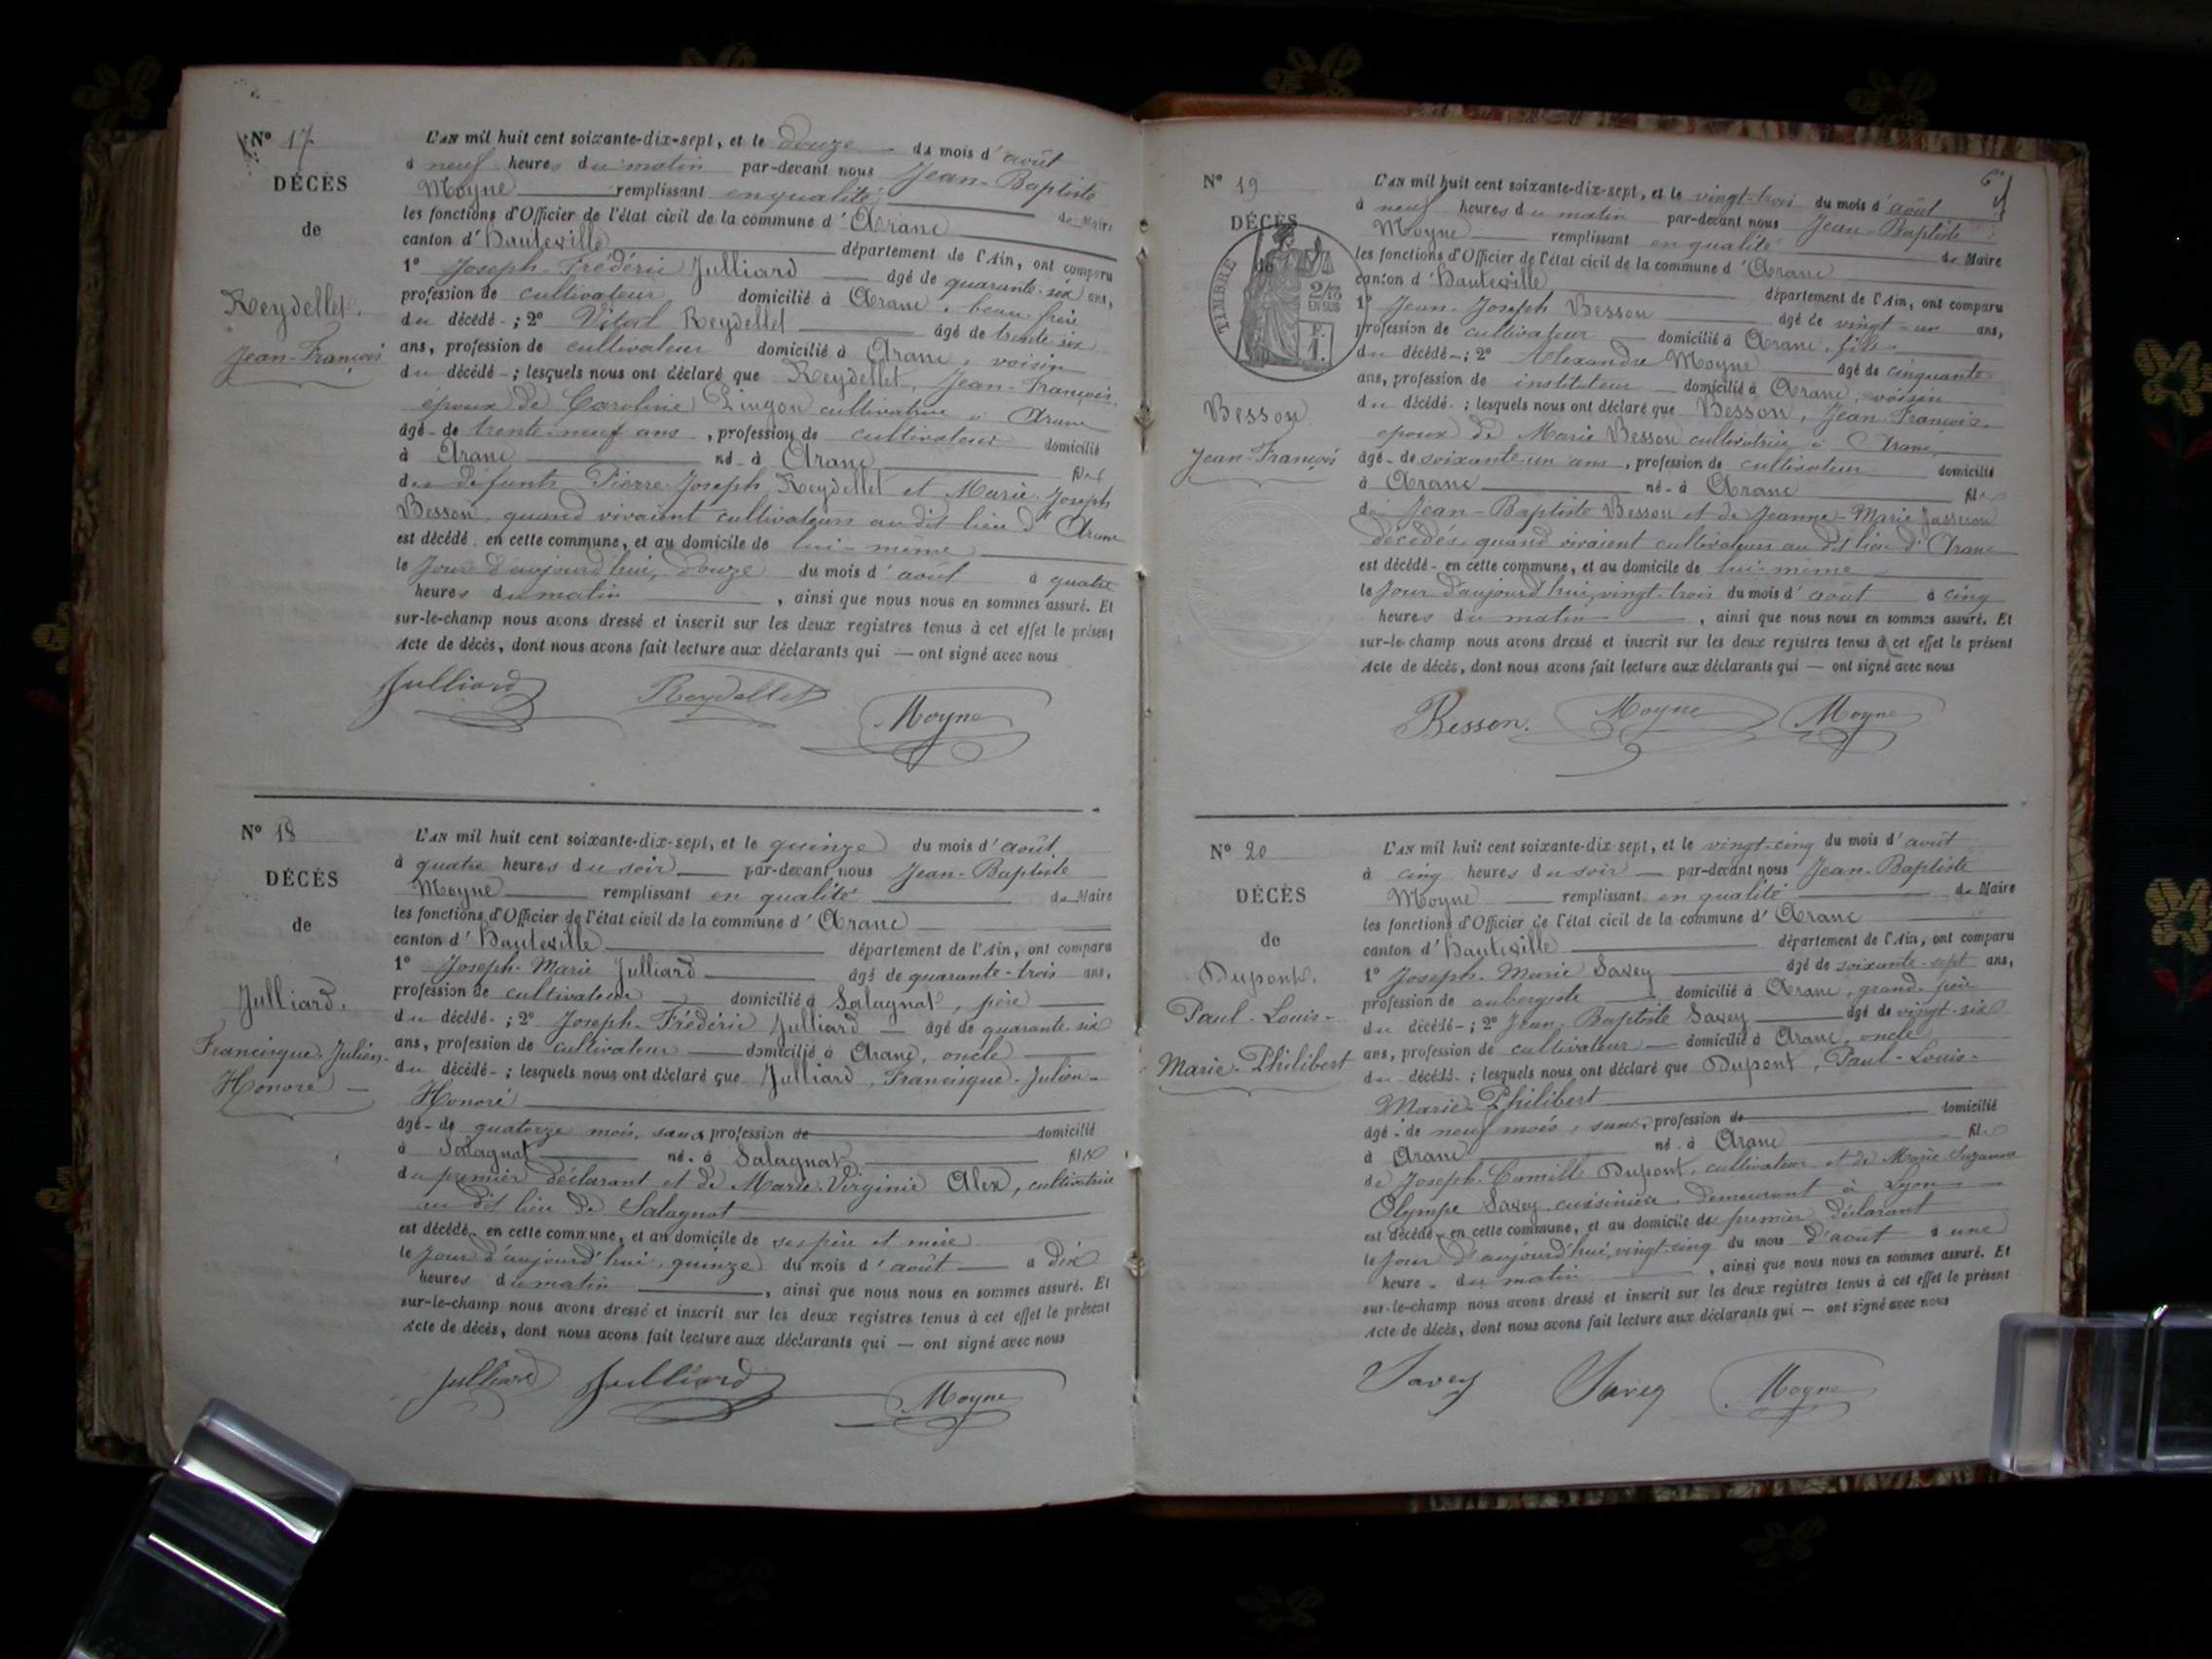 N° 17
DÉCÈS
de
Reydellet.
Jean-François
L'AN mil huit cent soixante-dix-sept, et le douze du mois d'août
à neuf heures du matin par-devant nous Jean-Baptiste
Moyne remplissant en qualité de Maire
les fonctions d'Officier de l'état civil de la commune d'Aranc
canton d'Hauteville département de l'Ain, ont comparu
1° Joseph-Frédéric Julliard âgé de quarante-six ans,
profession de cultivateur domicilié à Aranc, beau-frère
du décédé ; 2° Vital Reydellet âgé de trente-six
ans, profession de cultivateur domicilié à Aranc, voisin
du décédé ; lesquels nous ont déclaré que Reydellet, Jean-François,
époux de Caroline Pingon cultivatrice à Aranc
âgé de trente-neuf ans, profession de cultivateur domicilié
à Aranc né à Aranc fils
des défunts Pierre-Joseph Reydellet et Marie-Joseph
Besson, quand vivaient cultivateurs au dit lieu d'Aranc
est décédé en cette commune, et au domicile de lui-même
le jour d'aujourd'hui, douze du mois d'août à quatre
heures du matin, ainsi que nous nous en sommes assuré. Et
sur-le-champ nous avons dressé et inscrit sur les deux registres tenus à cet effet le présent
Acte de décès, dont nous avons fait lecture aux déclarants qui — ont signé avec nous
Julliard Reydellet Moyne
N° 18
DÉCÈS
de
Julliard.
Francisque-Julien-
Honoré —
L'AN mil huit cent soixante-dix-sept, et le quinze du mois d'août
à quatre heures du soir par-devant nous Jean-Baptiste
Moyne remplissant en qualité de Maire
les fonctions d'Officier de l'état civil de la commune d'Aranc
canton d'Hauteville département de l'Ain, ont comparu
1° Joseph-Marie Julliard âgé de quarante-trois ans,
profession de cultivateur domicilié à Salagnat, père
du décédé ; 2° Joseph-Frédéric Julliard âgé de quarante-six
ans, profession de cultivateur domicilié à Aranc, oncle
du décédé ; lesquels nous ont déclaré que Julliard, Francisque-Julien-
Honoré
âgé de quatorze mois, sans profession de domicilié
à Salagnat né à Salagnat fils
du premier déclarant et de Marie-Virginie Alex, cultivatrice
au dit lieu de Salagnat
est décédé en cette commune, et au domicile de ses père et mère
le jour d'aujourd'hui, quinze du mois d'août à dix
heures du matin, ainsi que nous nous en sommes assuré. Et
sur-le-champ nous avons dressé et inscrit sur les deux registres tenus à cet effet le présent
Acte de décès, dont nous avons fait lecture aux déclarants qui — ont signé avec nous
Julliard Julliard Moyne
N° 19
DÉCÈS
de
TIMBRE
2/10
EN SUS
Besson
Jean-François
L'AN mil huit cent soixante-dix-sept, et le vingt-trois du mois d'août
à neuf heures du matin par-devant nous Jean-Baptiste
Moyne remplissant en qualité de Maire
les fonctions d'Officier de l'état civil de la commune d'Aranc
canton d'Hauteville département de l'Ain, ont comparu
1° Jean-Joseph Besson âgé de vingt-un ans,
profession de cultivateur domicilié à Aranc, fils
du décédé ; 2° Alexandre Moyne âgé de cinquante
ans, profession de instituteur domicilié à Aranc, voisin
du décédé ; lesquels nous ont déclaré que Besson, Jean-François
époux de Marie Besson cultivatrice à Aranc,
âgé de soixante-un ans, profession de cultivateur domicilié
à Aranc né à Aranc fils
de Jean-Baptiste Besson et de Jeanne-Marie Jusseron
décédés, quand vivaient cultivateurs au dit lieu d'Aranc
est décédé en cette commune, et au domicile de lui-même
le jour d'aujourd'hui, vingt-trois du mois d'août à cinq
heures du matin, ainsi que nous nous en sommes assuré. Et
sur-le-champ nous avons dressé et inscrit sur les deux registres tenus à cet effet le présent
Acte de décès, dont nous avons fait lecture aux déclarants qui — ont signé avec nous
Besson. Moyne Moyne
N° 20
DÉCÈS
de
Dupont.
Paul-Louis-
Marie-Philibert
L'AN mil huit cent soixante-dix-sept, et le vingt-cinq du mois d'août
à cinq heures du soir par-devant nous Jean-Baptiste
Moyne remplissant en qualité de Maire
les fonctions d'Officier de l'état civil de la commune d'Aranc
canton d'Hauteville département de l'Ain, ont comparu
1° Joseph-Marie Savey âgé de soixante-sept ans,
profession de aubergiste domicilié à Aranc, grand-père
du décédé ; 2° Jean-Baptiste Savey âgé de vingt-six
ans, profession de cultivateur domicilié à Aranc, oncle
du décédé ; lesquels nous ont déclaré que Dupont, Paul-Louis-
Marie-Philibert
âgé de neuf mois, sans profession de domicilié
à Aranc né à Aranc fils
de Joseph-Camille Dupont, cultivateur et de Marie-Suzanne
Olympe Savey cuisinière, demeurant à Lyon
est décédé en cette commune, et au domicile du premier déclarant
le jour d'aujourd'hui, vingt-cinq du mois d'août à une
heure du matin, ainsi que nous nous en sommes assuré. Et
sur-le-champ nous avons dressé et inscrit sur les deux registres tenus à cet effet le présent
Acte de décès, dont nous avons fait lecture aux déclarants qui — ont signé avec nous
Savey Savey Moyne